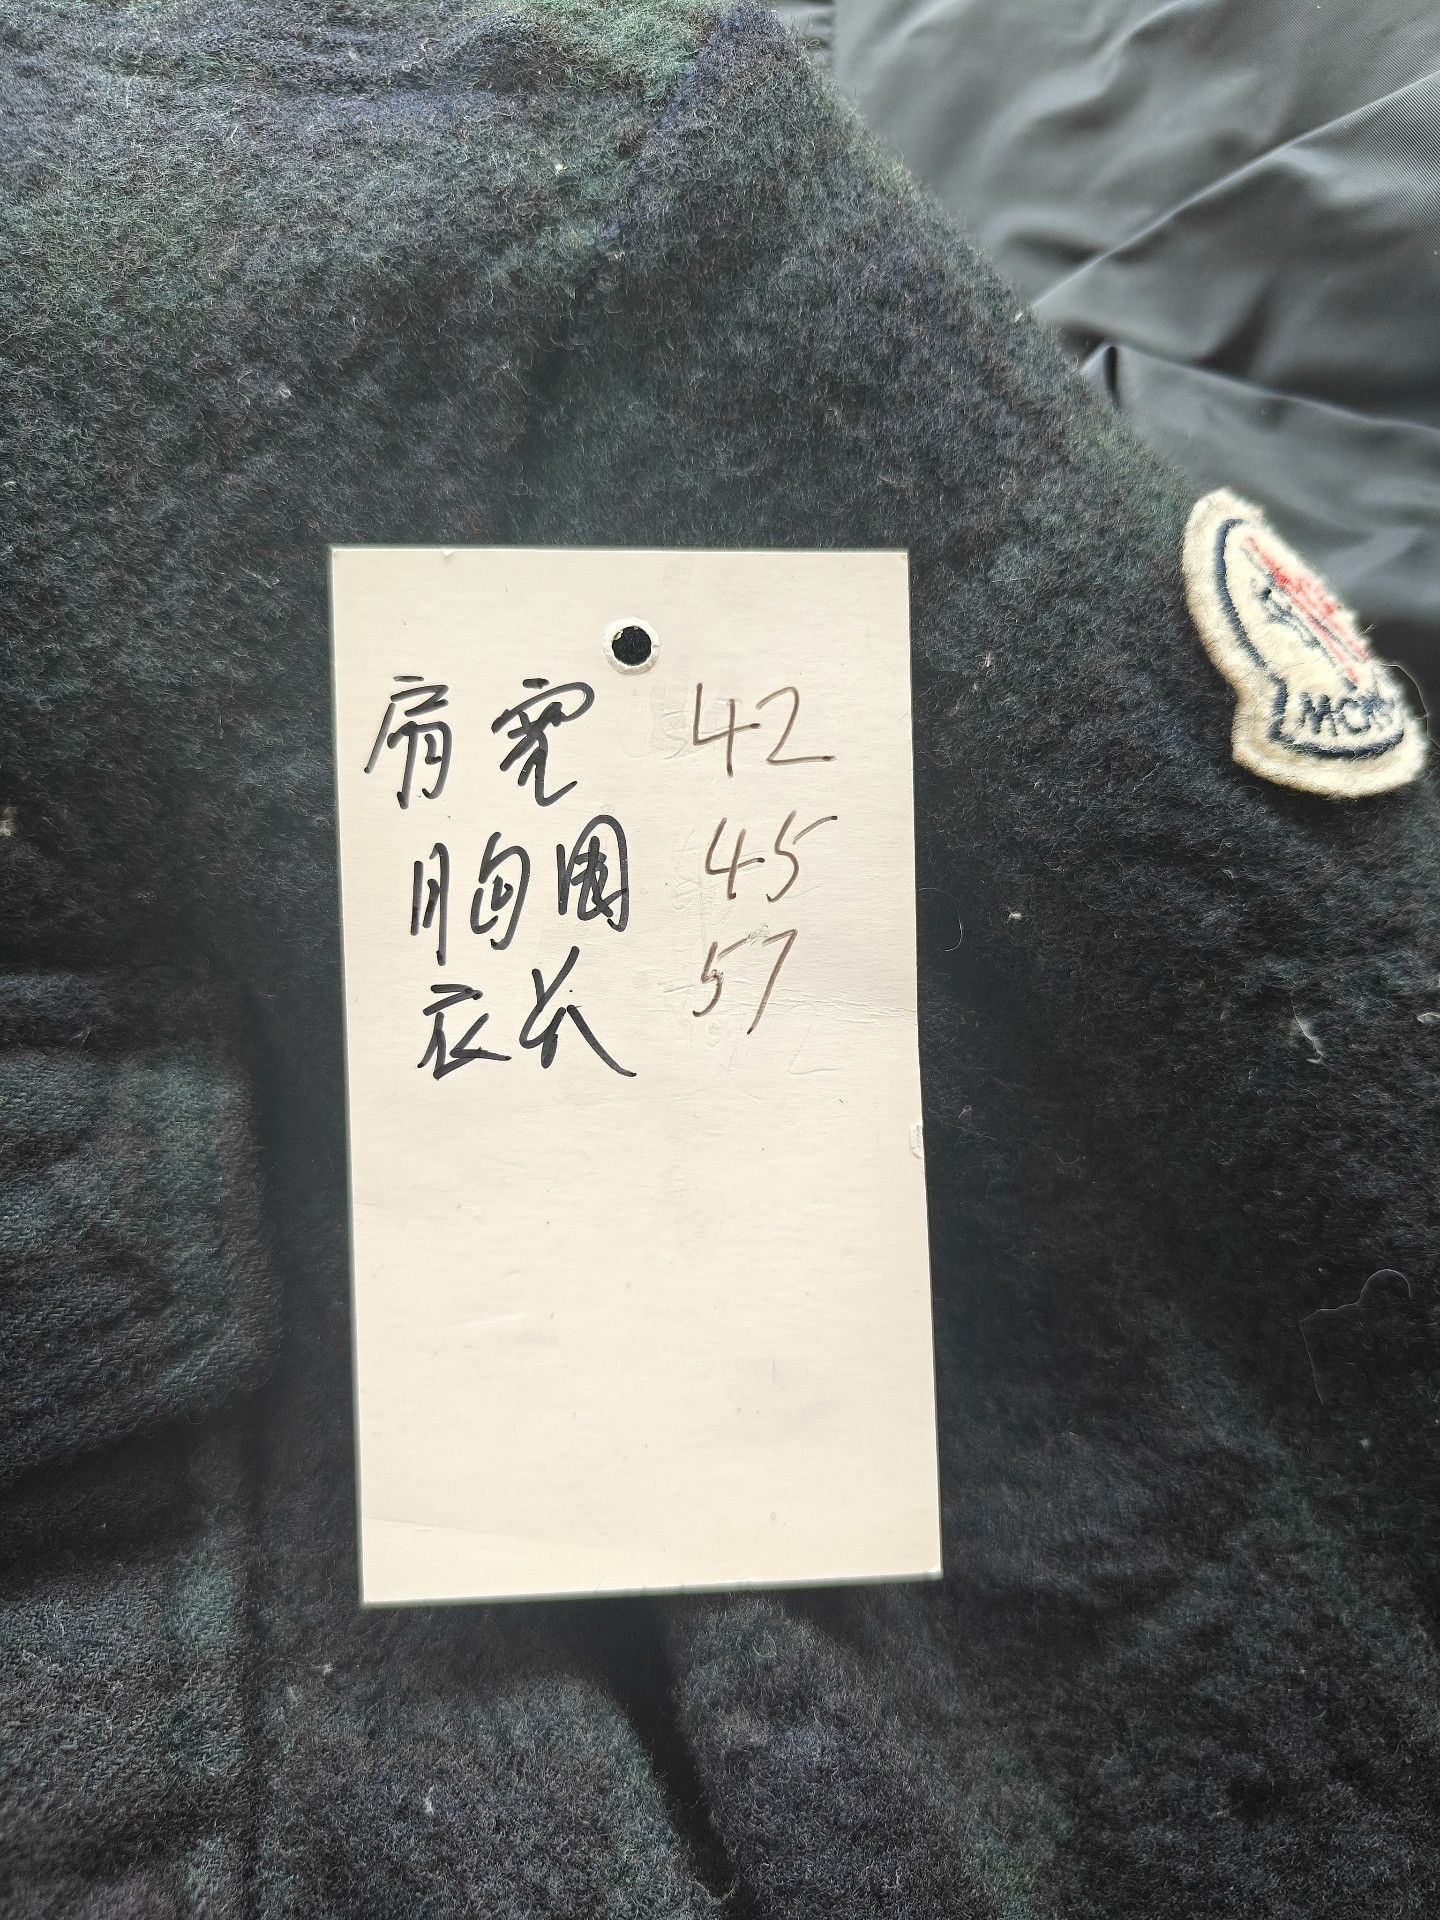 肩宽 42
胸围 45
衣长 57